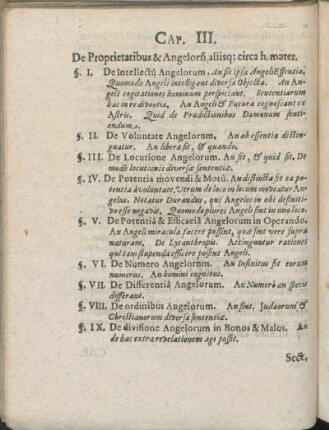 CAP. III.
De Proprietatibus & Angelorũ aliisq; circa h. mater.
§. I. De Intellectû Angelorum. An sit ipsa Angeli Essentia.
Quomodo Angeli intelligant diversa Objecta. An An-
geli cogitationes hominum perspiciant, Sententiarum
hac in re diversia. An Angeli & Futura cognoscant ex
Astris. Quid de Prædictionibus Dæmonum senti-
endum.
§. II. De Voluntate Angelorum. An ab essentia distin-
guatur. An libera sit, & quando.
§. III. De Locutione Angelorum. An sit, & quid sit, De
modô locutionis diversæ sententiæ.
§. IV. De Potentia movendi & Motû. An distincta sit ea po-
tentia à voluntate, Utrum de loco in locum moveatur An-
gelus. Notatur Durandus, qui Angelos in ubi definiti-
vo esse negavit. Quomodo plures Angeli sint in uno loco.
§. V. De Potentiâ & Efficaciâ Angelorum in Operando.
An Angeli miracula facere possint, quæ sint vere supra
naturam, De Lycanthropis. Attinguntur rationes
quî tam stupenda efficere possint Angeli.
§. VI. De Numero Angelorum. An Infinitus sit eorum
numerus. An homini cognitus.
§. VII. De Differentiâ Angelorum. An Numerò an specie
differant.
§. VIII. De ordinibus Angelorum. An sint. Judæorum &
Christianorum diversæ sententiæ.
§. IX. De divisione Angelorum in Bonos & Malos. An
de hac extra revelationem agi possit.
Sect.